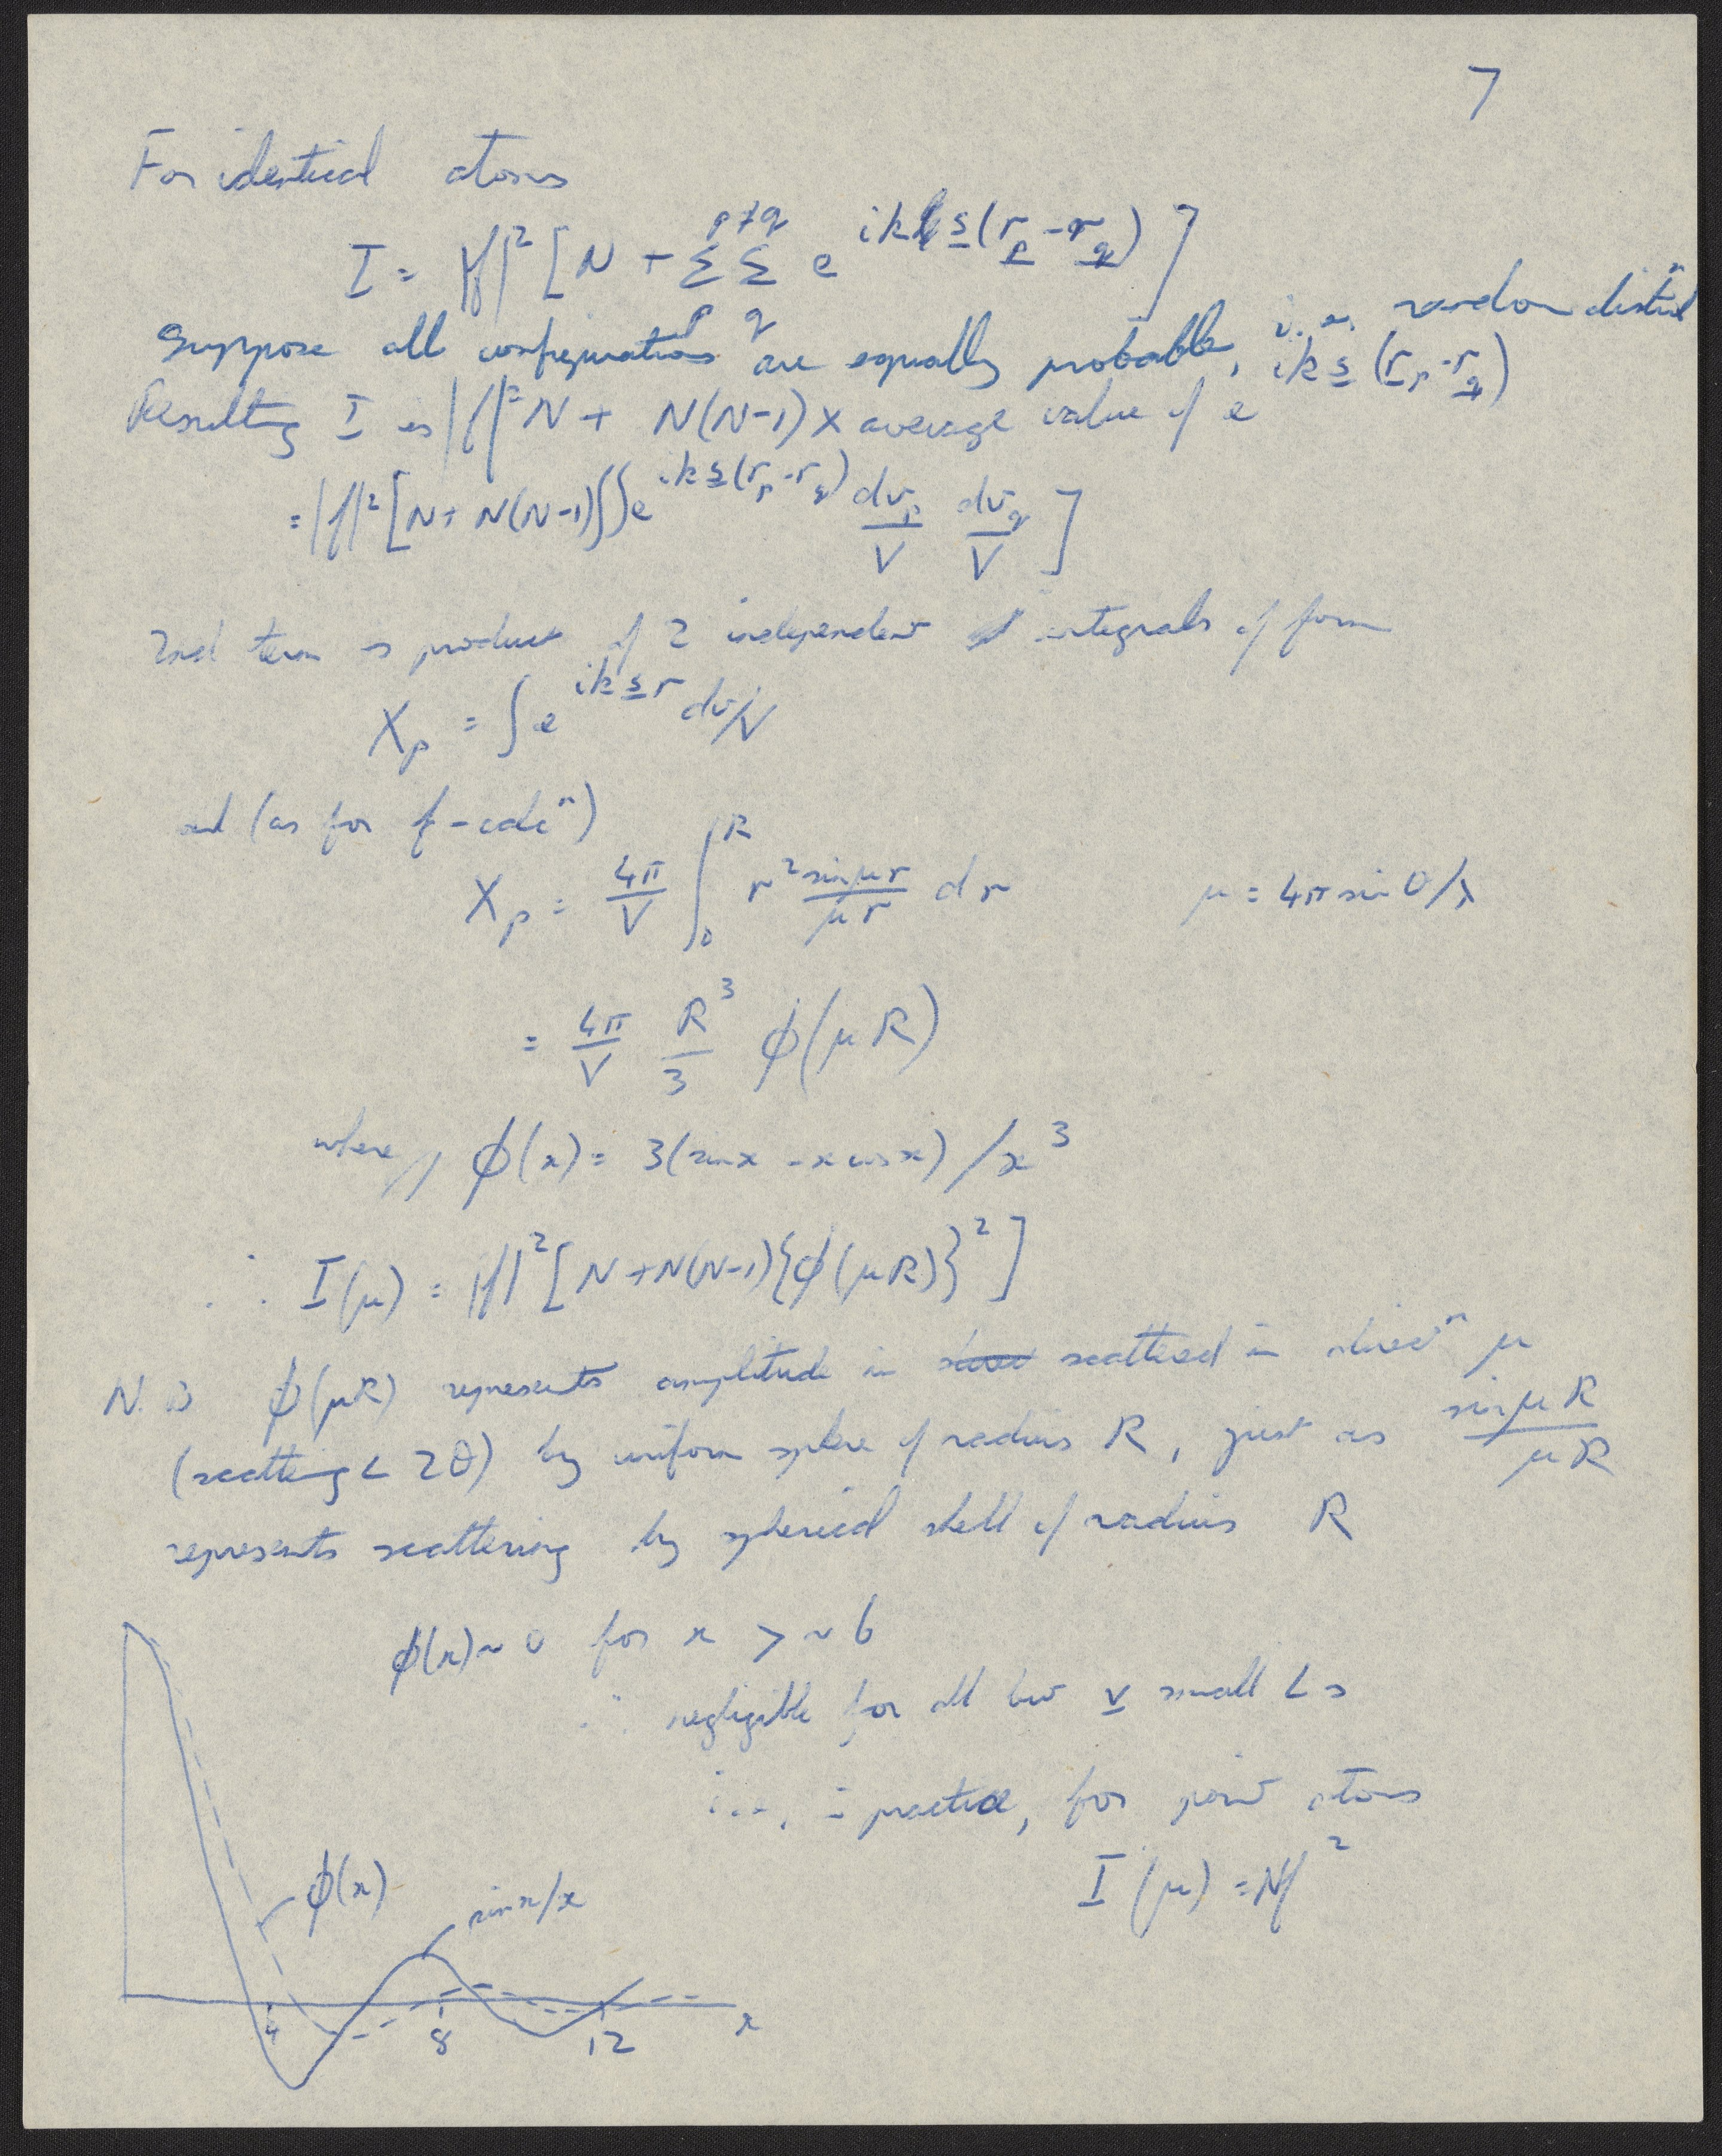 7
For identical atoms
I = |f|² [N + Σ_p Σ_q^{p≠q} e^{ik s̲(r̲_p - r̲_q)}]
Suppose all configurations are equally probable, i.e. random distribⁿ
Resulting I is |f|² N + N(N-1) × average value of e^{ik s̲(r̲_p - r_q)}
= |f|² [N + N(N-1) ∫∫ e^{ik s̲(r_p - r_q)} dv_p/V dv_q/V]
2nd term is product of 2 independent integrals of form
X_p = ∫ e^{ik s̲ r} dv/V
and (as for f-calcⁿ)
X_p = 4π/V ∫_0^R r² sin μr/μr dr μ = 4π sin θ/λ
= 4π/V R³/3 φ(μR)
where φ(x) = 3(sin x - x cos x)/x³
∴ I(μ) = |f|² [N + N(N-1){φ(μR)}²]
N.B φ(μR) represents amplitude in scattered in direcⁿ μ
(scattering ∠ 2θ) by uniform sphere of radius R, just as sin μR/μR
represents scattering by spherical shell of radius R
φ(x) ~ 0 for x > ~ 6
∴ negligible for all but v̲ small ∠s
i.e., in practice, for point atoms
I(μ) = Nf²
φ(x)
sin x/x
4 8 12 x